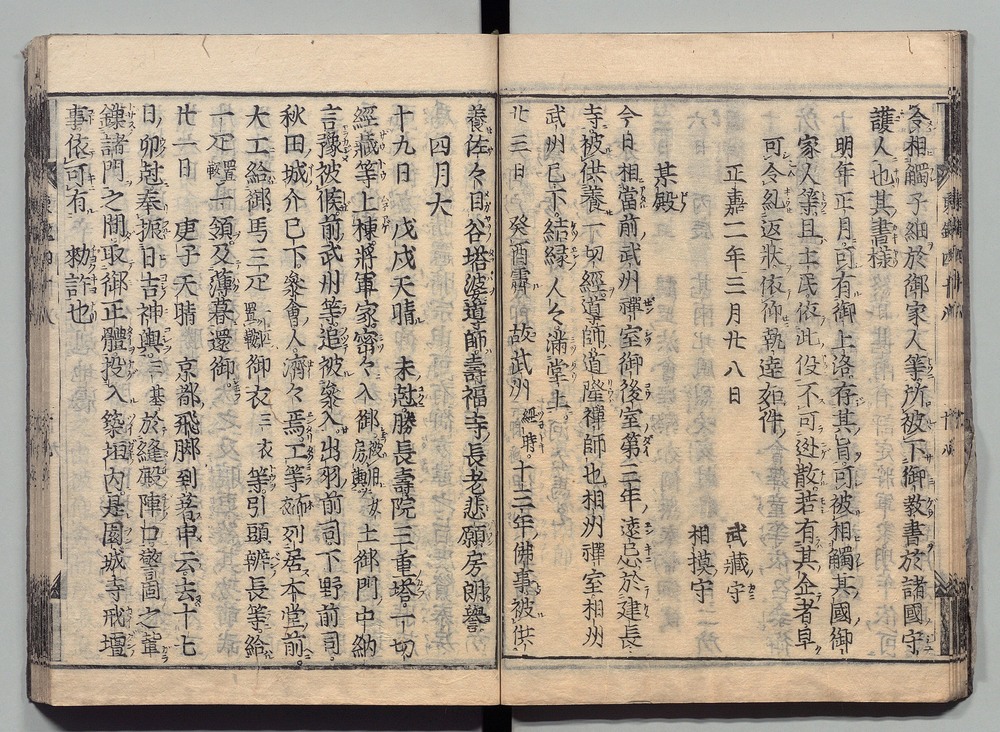 令相觸子細於御家人等所被下御教書於諸國守
護人也其書樣
明年正月可有御上洛存其旨可被相觸其國御
家人等且土民依此役不可逃散若有其企者早
可令糺返狀依仰執達如件
正嘉二年三月廿八日
武藏守
相摸守
某殿
今日相當前武州禪室御後室第三年遠忌於建長
寺被供養一切經導師道隆禪師也相州禪室相州
武州已下結緣人々滿堂上
廿三日 癸酉霽 故武州經時十三年佛事被供
養佐々目谷塔婆導師壽福寺長老悲願房朗譽
四月大
十九日 戊戌天晴 未尅勝長壽院三重塔一切
經藏等上棟將軍家密々入御 土御門中納
言豫被候前武州等追被參入出羽前司下野前司
秋田城介已下參會人濟々焉工等列居本堂前
大工給御馬三疋置鞍御衣三衣等引頭辨長等給
一疋置鞍一領及薄暮還御
廿一日 庚子天晴 京都飛脚到著申云去十七
日卯尅奉振日吉神輿三基於縫殿陣口警固之輩
鏁諸門之間取御正體投入築垣內是園城寺戒壇
事依可有 勅許也